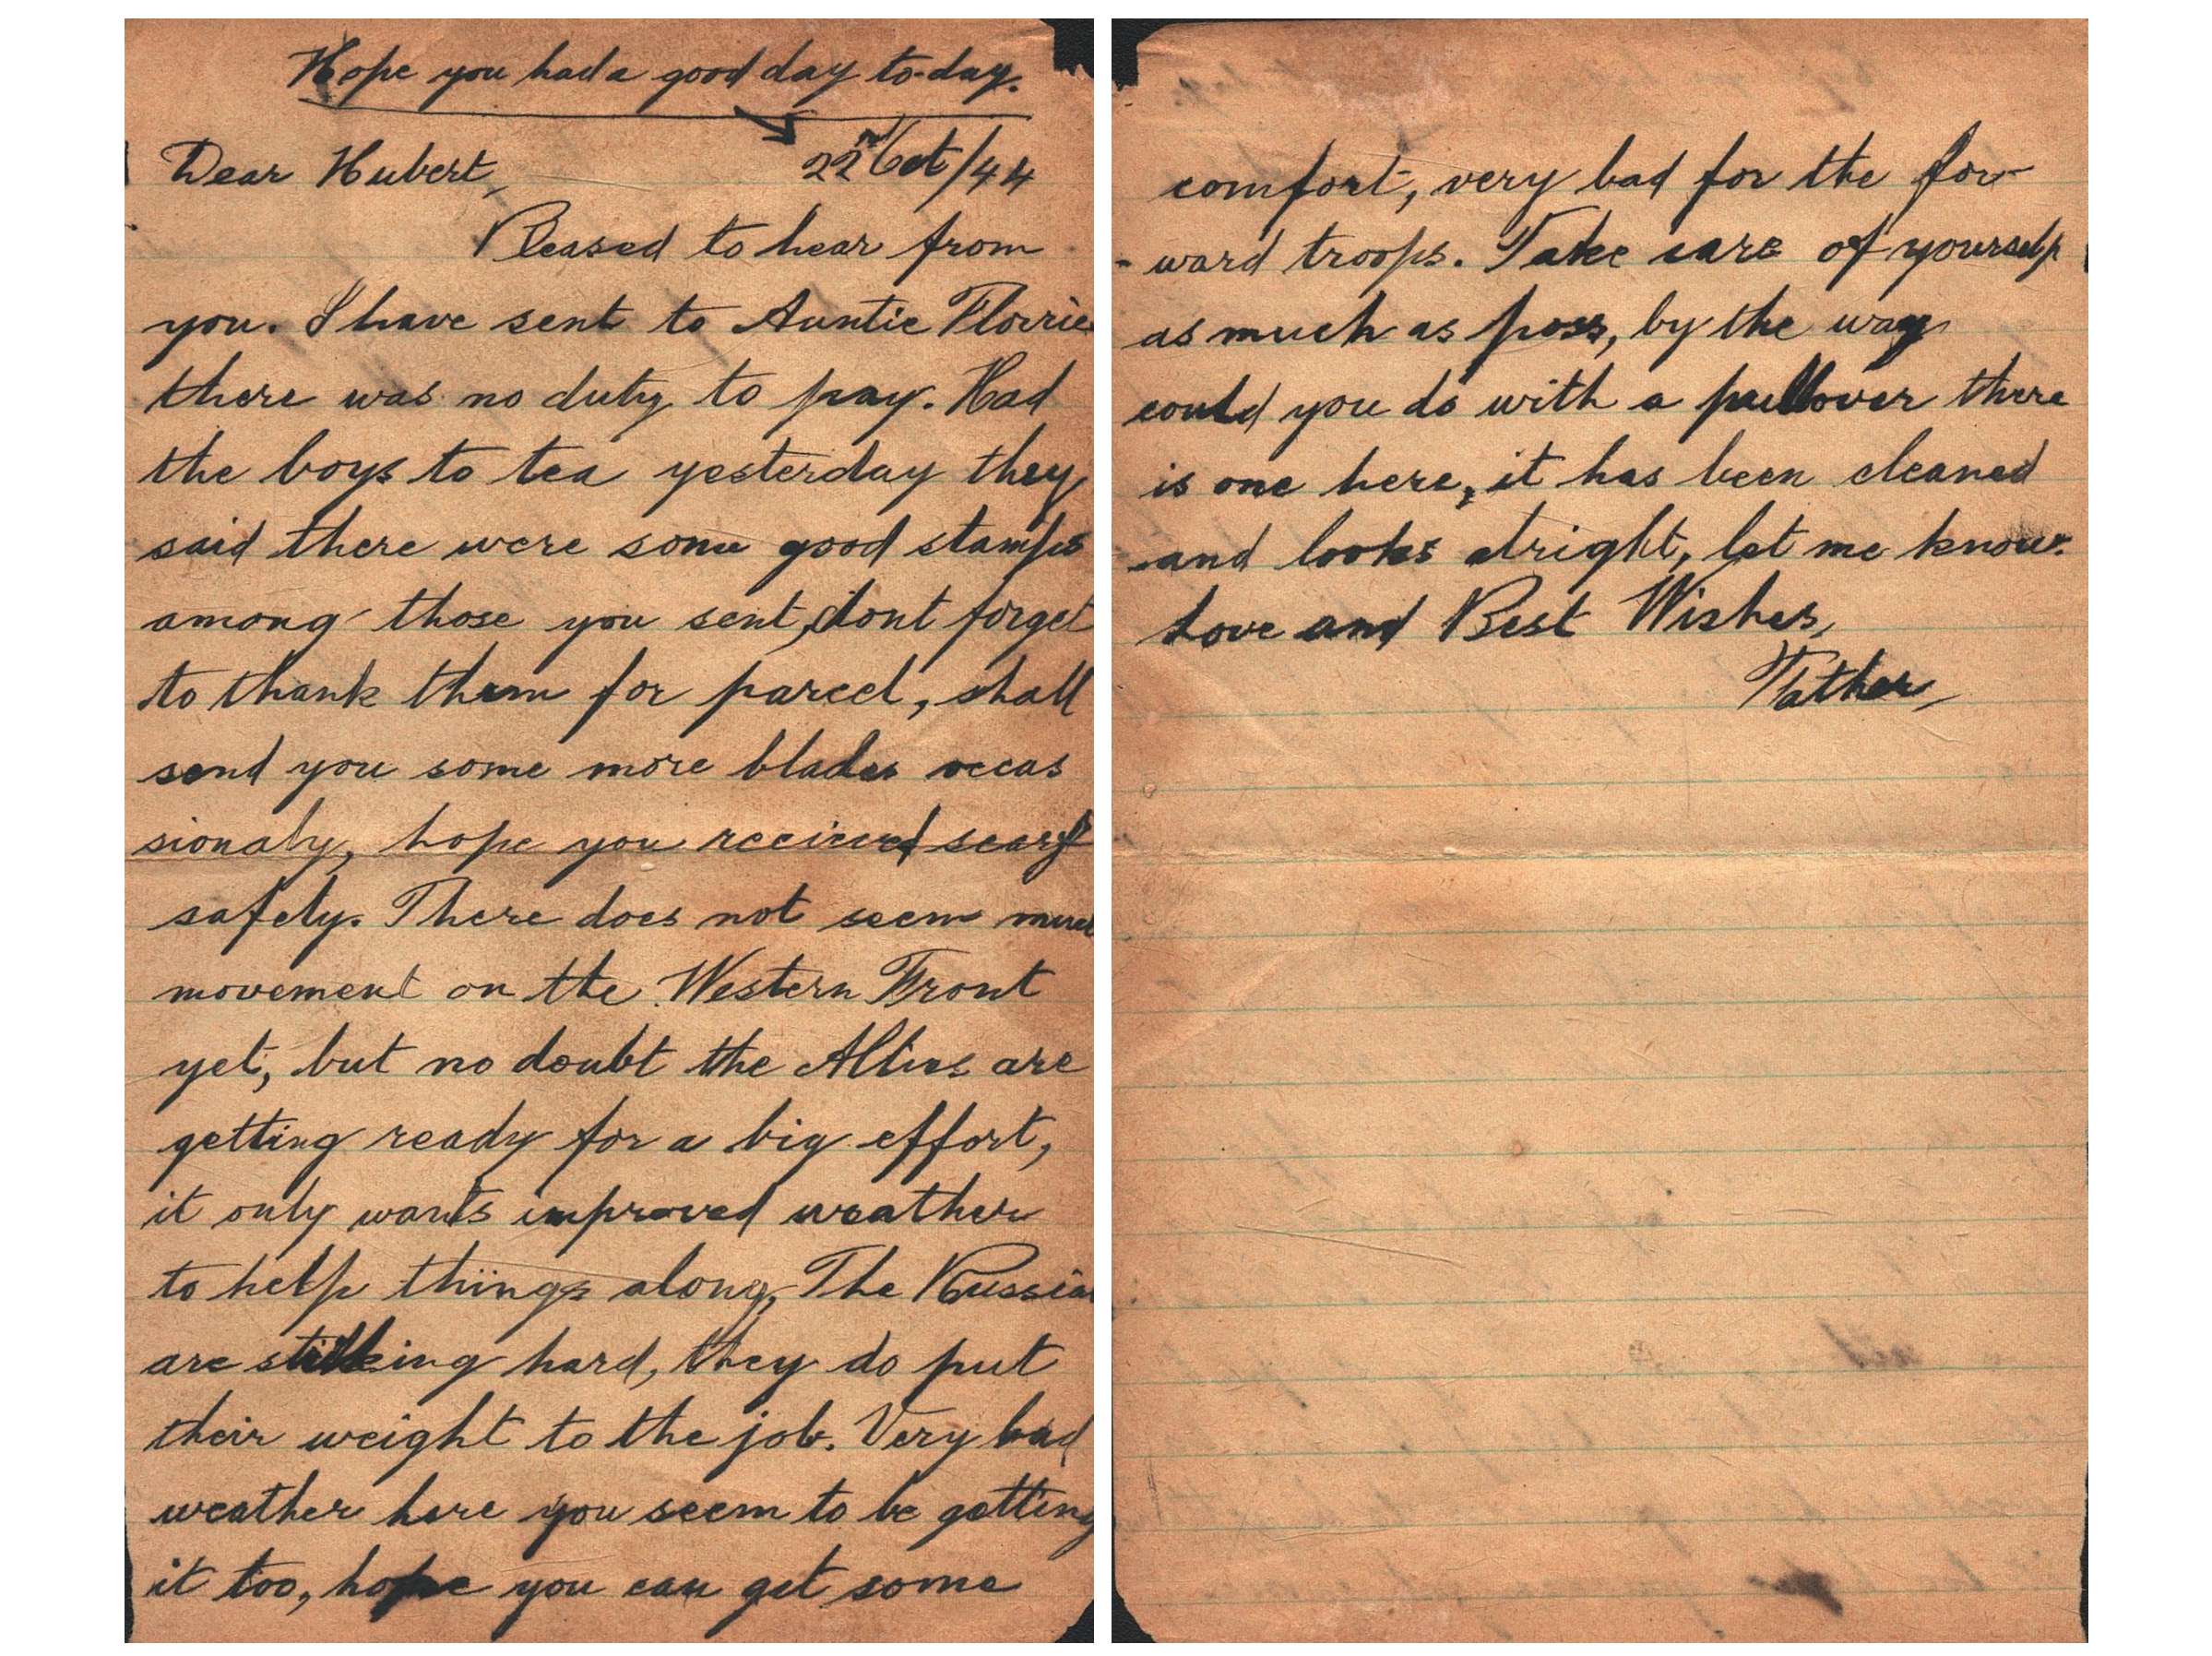 Hope you had a good day to-day.
Dear Hubert, 22nd Oct/44
Pleased to hear from
you. I have sent to Auntie Florrie
there was no duty to pay. Had
the boys to tea yesterday they
said there were some good stamps
among those you sent, dont forget
to thank them for parcel, shall
send you some more blades occas
sionaly, hope you recieved scarf
safely. There does not seem much
movement on the Western Front
yet, but no doubt the Allies are
getting ready for a big effort,
it only wants improved weather
to help things along, The Russian
are hard, they do put
their weight to the job. Very bad
weather here you seem to be getting
it too, hope you can get some
comfort, very bad for the for-
-ward troops. Take care of yourself
as much as poss, by the way
could you do with a pullover there
is one here, it has been cleaned
and looks alright, let me know.
Love and Best Wishes,
Father,